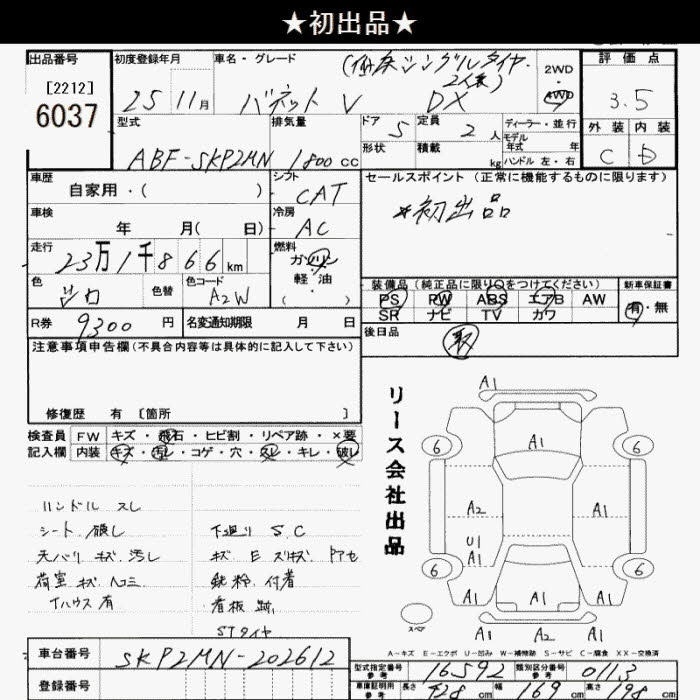 ★初出品★
出品番号 初度登録年月 車名・グレード (低床シングルタイヤ. 2WD 評価点
[2212] 2人乗)
6037 25 11月 バネット V DX 4WD 3.5
型式 排気量 ドア 5 定員 2 人 ディーラー・並行 外装 内装
モデル年式 年
ABF-SKP2MN 1800 cc 形状 積載 kg ハンドル 左・右 C D
車歴 シフト セールスポイント (正常に機能するものに限ります)
自家用・( ) CAT *初出品
車検 冷房
年 月( 日) AC
走行 燃料
23万1千866km ガソリン
色 色替 色コード 軽・油 装備品 (純正品に限り○をつけてください) 新車保証書
シロ A2W ( ) PS PW ABS エアB AW 有・無
R券 9300 円 名変通知期限 月 日 SR ナビ TV カワ
注意事項申告欄 (不具合内容等は具体的に記入して下さい) 後日品 取
修復歴 有 〔箇所 〕
検査員 FW キズ・飛石・ヒビ割・リペア跡・×要
記入欄 内装 キズ・汚レ・コゲ・穴・スレ・キレ・破レ
ハンドル スレ
シート 破レ 下廻り S.C
天バリ キズ.汚し
荷室 キズ ヘコミ 鉄粉.付着
Tハウス有 看板跡
STタイヤ
リース会社出品
A1
6 A1 6
A2 A1
U1
A1
6 6
A1 A1 A1
スペア A1 A2
A-キズ E-エクボ U-凹み W-補修跡 S-サビ C-腐食 XX-交換済
車台番号 SKP2MN-202612 型式指定番号 参考 16592 類別区分番号 参考 0113
登録番号 車庫証明用 参考 長さ 428 cm 幅 169 cm 高さ 198 cm